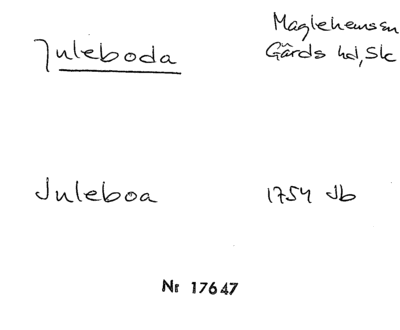 Maglehems sn
Juleboda Gärds hd, Sk
Juleboa 1754 Jb
Nr 17647